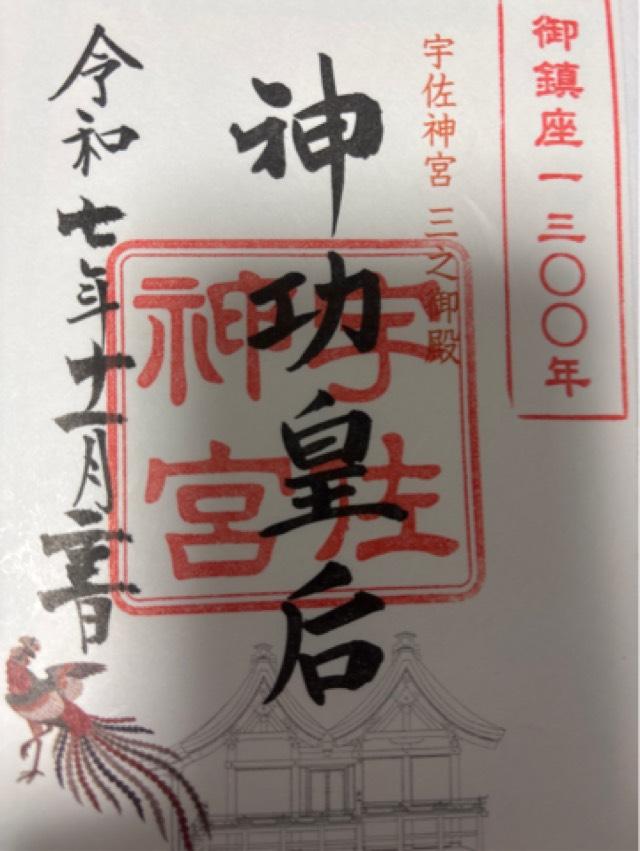 御鎮座一三〇〇年
宇佐神宮 三之御殿
神功皇后
宇佐
神宮
令和七年十一月日